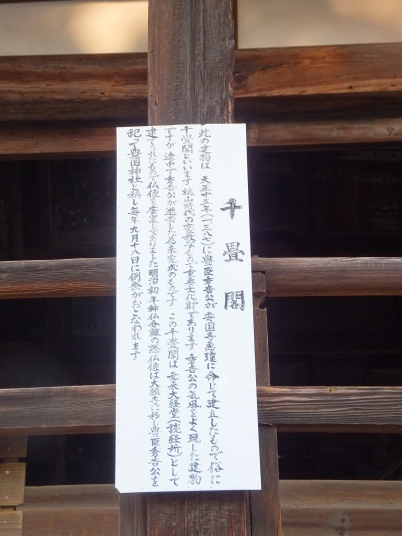 千畳閣
此の建物は 天正十五年(一五八七)に豊臣秀吉公が安国寺恵瓊に命じて建立したもので俗に
千畳閣といいます 桃山時代の豪放なもので重要文化財であります 秀吉公の気風をよく現した建物
ですが 途中で秀吉公が逝去した為未完成のものです この千畳閣は元来大経堂(読経所)として
建てられたもので仏像を安置してありました 明治初年神仏分離の際仏像は大願寺に移し豊臣秀吉公を
祀って豊国神社と称し毎年九月十八日に例祭がおこなわれます